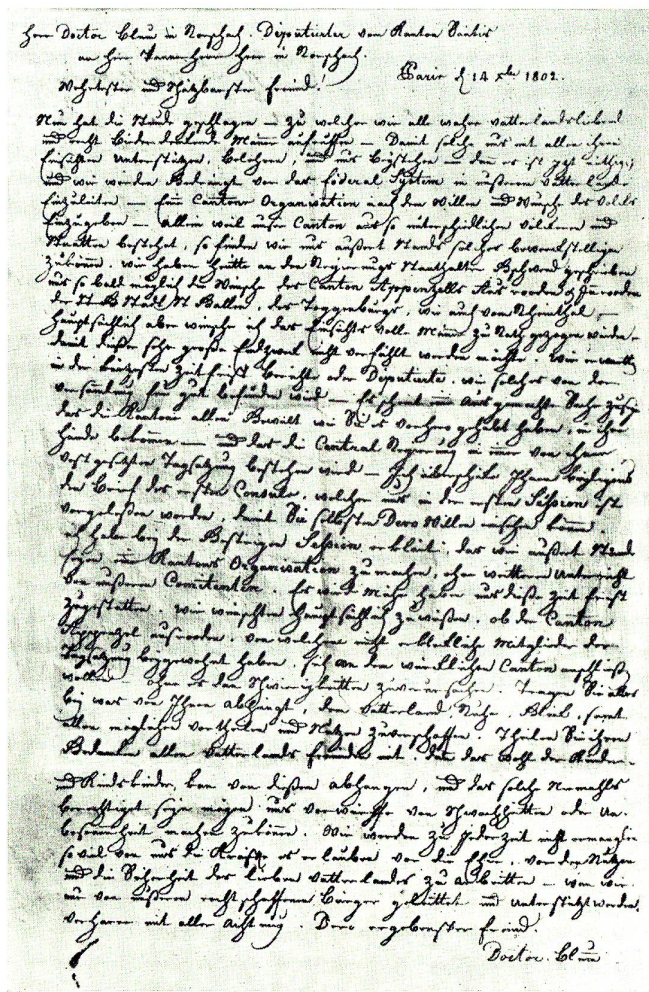 Herr Doctor Blum in Rorschach. Deputierter vom Kanton Säntis
an Herr Herr in Rorschach.
Paris d 14 xbr 1802.
Wehrtester und Schätzbarster Freünd!
Nun hat die Stunde geschlagen — zu welcher wir alle wahre vatterlandsliebend
und recht Biderdenkende Männer aufruffen — Damit solche uns mit allen ihren
Einsichten Unterstützen, Belehren, und uns beystehen — den es ist jetz nöthig
und wir werden Bedrängt von das Föderal System in unserem Vatterlande
Einzuleiten — Eine Cantons Organisation nach dem Willen und Wunsch des Volks
Einzugeben — allein weil unser Canton aus so unterschidlichen Völkeren und
bestehet, so finden wir uns außert Stande solches bewerckstelligen
zukönnen, wir haben heütte an den Regierungs Statthalter Gschwend geschrieben
uns so bald möglich die Wünsche des Canton Appenzells Aus rooden
der Stadt St Gallen, des Toggenburgs, wie auch vom Rheinthal —
Hauptsächlich aber wünsche ich das Einsichts volle Männer zu Rath gezogen werden
damit dißer sehr große Endzweck nicht verfählt werden möchte. Wir erwarten
in der kürzesten Zeit Berichte oder Deputierte, wie solches von den
gut befunden wird — Es scheint eine ausgemachte Sache zuseyn
das die Kantone allen Gewalt wie Sie es vorhero gehabt haben, in ihre
Hände bekommen — und das die Central Regierung in einer von ihnen
vest gesetzten Tagsatzung bestehen wird — Ich überschicke Ihnen
den Brief des ersten Consuls, welcher uns in der ersten Session ist
vorgelesen worden, damit Sie selbsten Dero Willen können
ich habe bey der Session erklärt, das wir außert Stand
seyen eine Kantons Organisation zu machen, ohne weitteren Unterricht
von unseren Comitenten. Es wird uns diße Zeit
zugestatten. Wir wünschten Hauptsächlich zu wissen, ob der Canton
Appenzel ausrooden, von welchem nicht Mitglieder der
Tagsatzung beygewohnt haben, sich an den würcklichen Canton anschließen
wolle — ohne es den Schwierigkeitten zu verursachen. Tragen Sie alles
bey was von Ihnen abhängt, dem Vatterland, Ruhe, Glück, samt
allen möglichen vortheilen und Nutzen zuverschaffen. Theilen Sie ihre
Gedancken allen Vatterlands freünden mit. den das wohl der Kinder
und Kindskinder, kan von dißem abhangen, und das solche Niemahls
berechtiget seyn mögen uns vorwürffe von Schwachheitten oder Un-
besonnenheit machen zukönnen. Wir werden zu jeder Zeit nicht ermanglen
so viel von uns die Kräffte es erlauben vor die Ehre, vor den Nutzen
und die Sicherheit des lieben Vatterlandes zu arbeitten — wan wir
nur von unseren rechtschaffenen Bürger geleittet und unterstützt werden.
Verharre mit aller Achtung. Dero ergebenster freünd.
Doctor. Blum